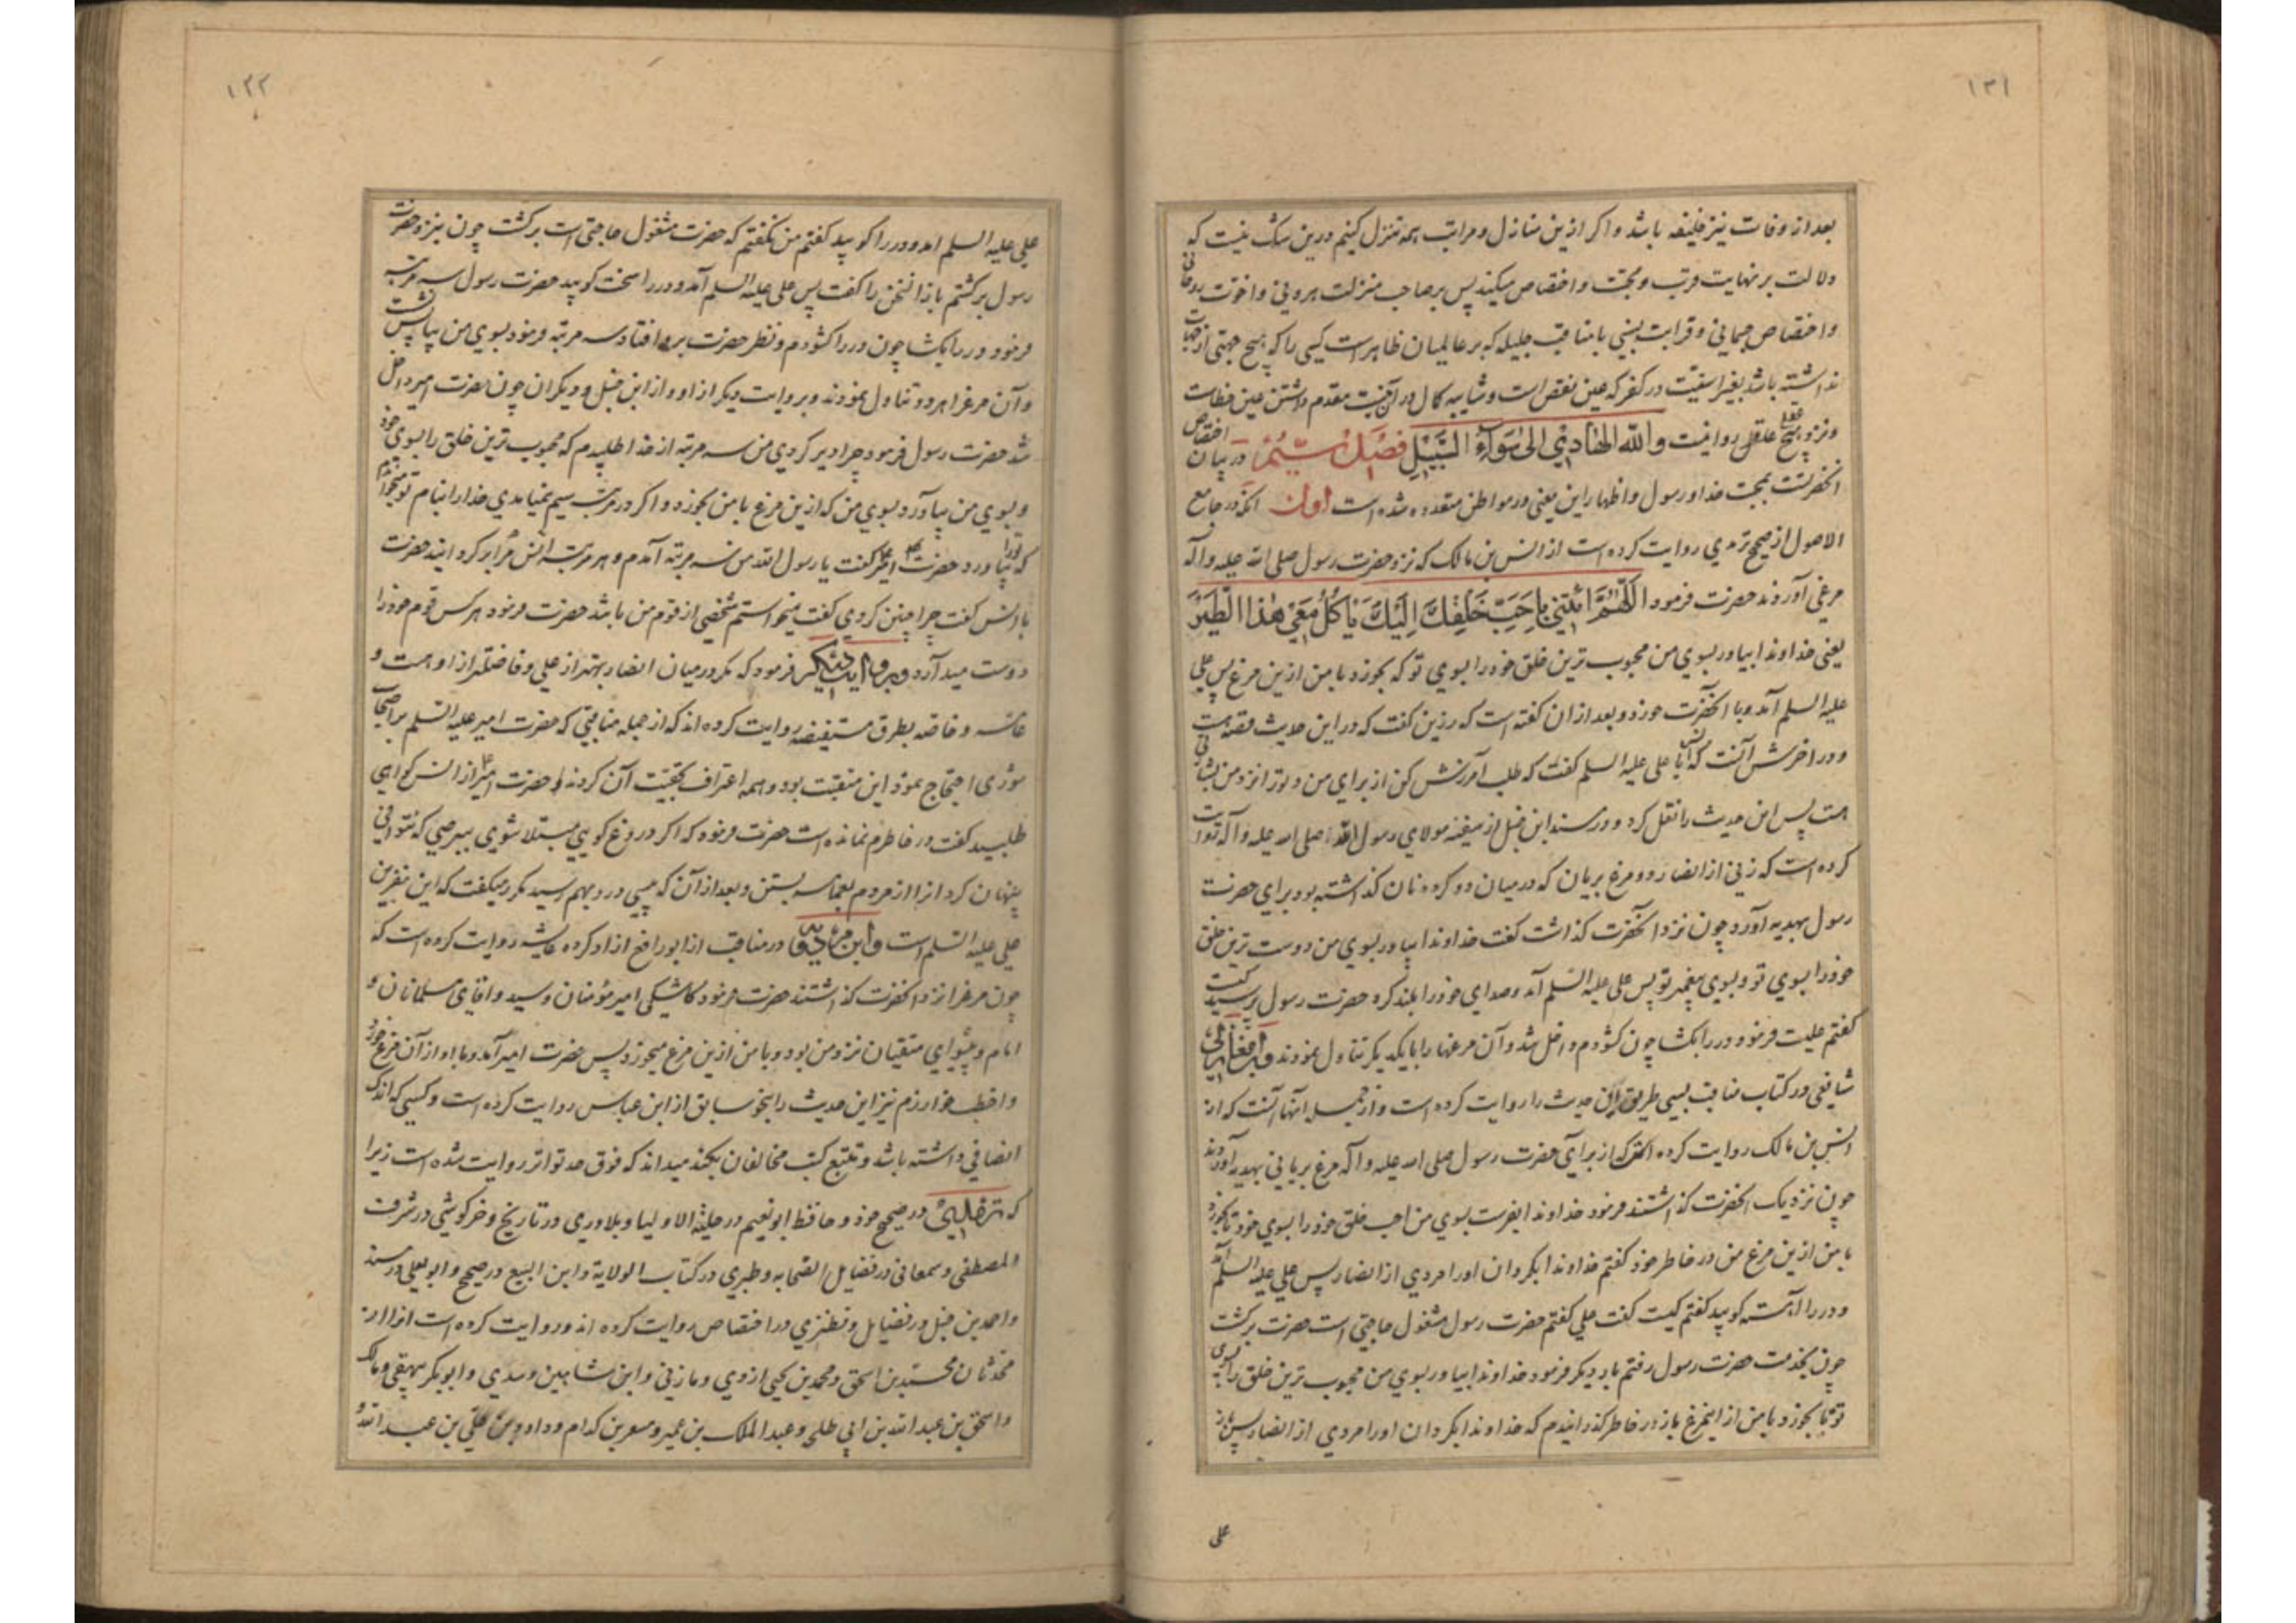 ۱۳۱
بعد از وفات نیز خلیفه باشد و اکر ازین منازل و مراتب همه تنزل کنیم درین شک نیست که
دلالت بر نهایت قرب و محبت و اختصاص میکند پس بر صاحب منزلت هرونی و اخوت روحانی
و اختصاص جسمانی و قرابت نسبی با مناقب جلیله که بر عالمیان ظاهر است کسی را که هیچ جهتی از جهات
نداشته باشد بغیر اسبقیّت در کفر که عین نقص است و شایبه کمال در آن نیست مقدم داشتن عین خطاست
و نزد هیچ عقل عاقلی روا نیست والله الهادی الی سواء السبیل فصل سیّم در بیان اختصاص
آنحضرتست بمحبت خدا و رسول و اظهار این معنی در مواطن متعدده شده است اول آنکه در جامع
الاصول از صحیح ترمذی روایت کرده است از انس بن مالک که نزد حضرت رسول صلی الله علیه و آله
مرغی آوردند حضرت فرمود اللّهُمَّ ائتِنی بِاَحَبِّ خَلقِكَ اِلَیكَ یَاکُلُ مَعِی هٰذَا الطَّیرَ
یعنی خداوندا بیاور بسوی من محبوب ترین خلق خود را بسوی تو که بخورد با من ازین مرغ پس علی
علیه السلم آمد و با آنحضرت خورد و بعد از ان کفته است که رزین کفت که در این حدیث قصه هست
و در اخرش آنست که انس با علی علیه السلم کفت که طلب آمرزش کن از برای من و تورا نزد من بشارتی
هست پس این حدیث را نقل کرد و در مسند ابن حنبل از سفینه مولای رسول الله صلی الله علیه و آله روایت
کرده است که زنی از انصار دو مرغ بریان که در میان دو کرده نان کذاشته بود برای حضرت
رسول بهدیه آورد چون نزد آنحضرت کذاشت کفت خداوندا بیاور بسوی من دوست ترین خلق
خود را بسوی تو و بسوی پیغمبر تو پس علی علیه السلم آمد و صدای خود را بلند کرد حضرت رسول پرسید کیست
کفتم علیست فرمود در را بکشا چون کشودم داخل شد و آن مرغها را با یکدیکر تناول نمودند و ابن مغازلی
شافعی در کتاب مناقب بسی طریق این حدیث را روایت کرده است و از جمله آنها آنست که از
انس بن مالک روایت کرده است که از برای حضرت رسول صلی الله علیه و آله مرغ بریانی بهدیه آوردند
چون نزدیک آنحضرت کذاشتند فرمود خداوندا بفرست بسوی من احب خلق خود را بسوی خود تا بخورد
با من ازین مرغ من در خاطر خود کفتم خداوندا بکردان اورا مردی از انصار پس علی علیه السلم آمد
و در را آهسته کوبید کفتم کیست کفت علی کفتم حضرت رسول مشغول حاجتی است حضرت برکشت
چون بخدمت حضرت رسول رفتم بار دیکر فرمود خداوندا بیاور بسوی من محبوب ترین خلق را بسوی
تو تا بخورد با من از اینمرغ باز در خاطر کذرانیدم که خداوندا بکردان اورا مردی از انصار پس باز
علی
۱۳۲
علی علیه السلم امد و در را کوبید کفتم من نکفتم که حضرت مشغول حاجتی است برکشت چون بنزد حضرت
رسول برکشتم باز انسخن را کفت پس علی علیه السلم آمد و در را سخت کوبید حضرت رسول سه مرتبه
فرمود در را بکشا چون در را کشودم و نظر حضرت برو افتاد سه مرتبه فرمود بسوی من بیا پس نشست
و آن مرغرا هر دو تناول نمودند و بروایت دیکر از او و از ابن حنبل و دیکران چون حضرت امیر داخل
شد حضرت رسول فرمود چرا دیر کردی من سه مرتبه از خدا طلبیدم که محبوب ترین خلق را بسوی خود
و بسوی من بیاورد بسوی من که ازین مرغ با من بخورد و اکر در مرتبه سیم نمیامدی خدا را بنام تو میخواندم
که تورا بیاورد حضرت امیر کفت یا رسول الله من سه مرتبه آمدم و هر مرتبه انس مرا برکردانید حضرت
با انس کفت چرا چنین کردی کفت میخواستم شخصی از قوم من باشد حضرت فرمود هر کس قوم خود را
دوست میدارد و بروایت دیکر فرمود که مکر در میان انصار بهتر از علی و فاضلتر از او هست و
عامّه و خاصّه بطرق مستفیضه روایت کرده اند که از جمله مناقبی که حضرت امیر علیه السلم بر اصحاب
شوری احتجاج نمود این منقبت بود و همه اعتراف بحقیّت آن کردند و حضرت امیر از انس کواهی
طلبید کفت در خاطرم نمانده است حضرت فرمود که اکر دروغ کویی مبتلا شوی ببرصی که نتوانی
پنهان کرد انرا از مردم بعمامه بستن و بعد از آن که پیسی در رو بهم رسید مکرر میکفت که این نفرین
علی علیه السلم است و ابن مردویه در مناقب از ابو رافع ازاد کرده عایشه روایت کرده است که
چون مرغرا نزد آنحضرت کذاشتند حضرت فرمود کاشکی امیر مؤمنان و سید و اقای مسلمانان و
امام و پیشوای متقیان نزد من بود و با من ازین مرغ میخورد پس حضرت امیر آمد و با او از آن مرغ خورد
و اخطب خوارزم نیز این حدیث را بنحو سابق از ابن عباس روایت کرده است و کسی که اندک
انصافی داشته باشد و تتبع کتب مخالفان بکند میداند که فوق حد تواتر روایت شده است زیرا
که ترمذی در صحیح خود و حافظ ابو نعیم در حلیة الاولیا و بلاذری در تاریخ و خرکوشی در شرف
المصطفی و سمعانی در فضایل الصحابه و طبری در کتاب الولایة و ابن البیع در صحیح و ابو یعلی در مسند
و احمد بن حنبل در فضایل و نطنزی در اختصاص روایت کرده اند و روایت کرده است انرا از
محدّثان محمّد بن اسحق و محمد بن یحیی ازدی و مازنی و ابن شاهین و سدی و ابو بکر بیهقی و مالک
و اسحق بن عبد الله بن ابی طلحه و عبد الملک بن عمیر و مسعر بن کدام و داود بن علی بن عبد الله